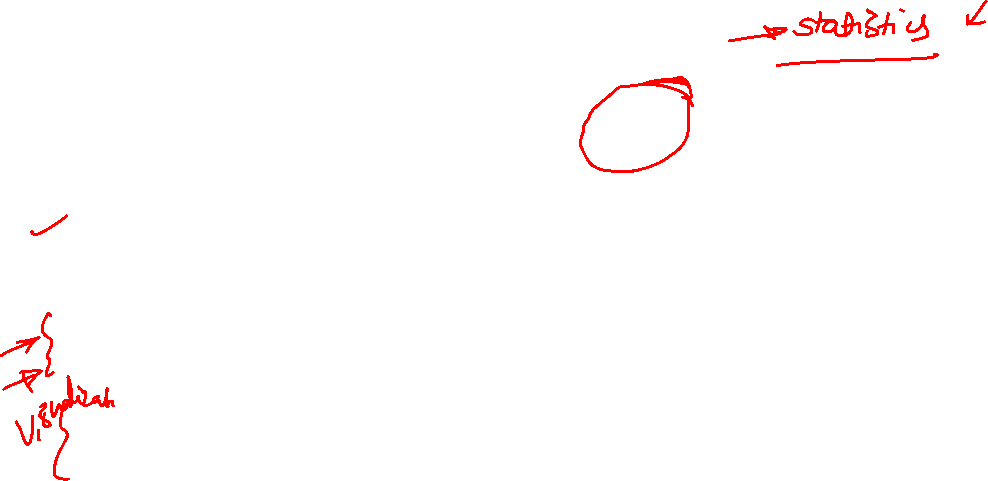 statistics
Visualizatn